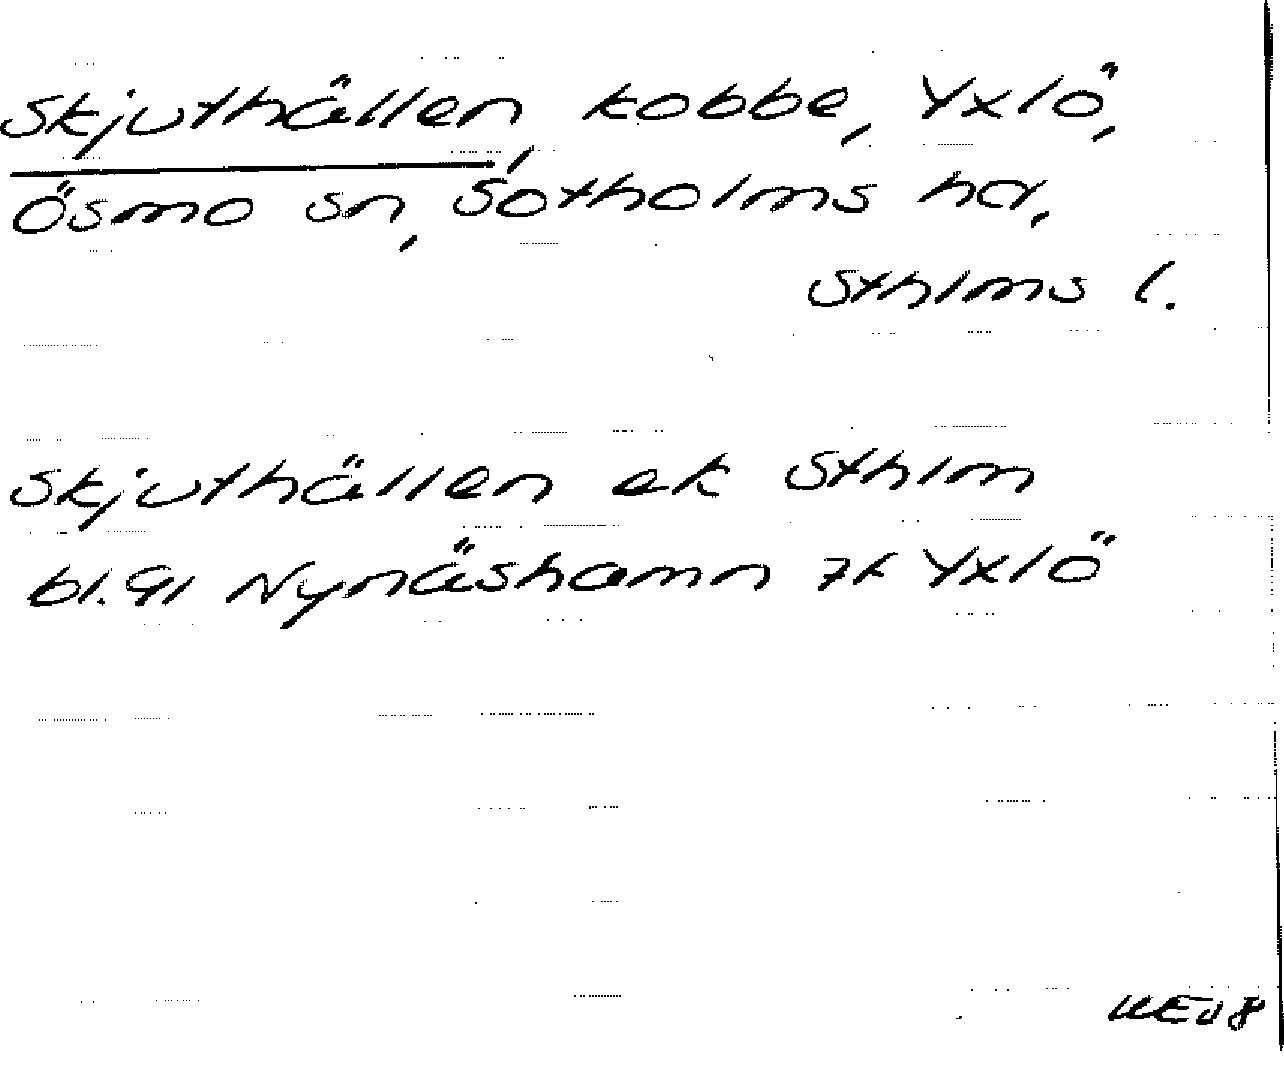 Skjuthällen, kobbe, Yxlö,
Ösmo sn, Sotholms hd,
Sthlms l.
Skjuthällen ek Sthlm
bl. 91 Nynäshamn 7k Yxlö